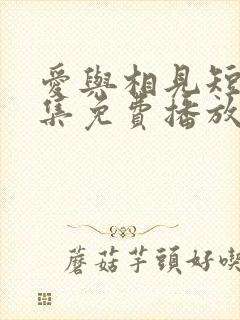 愛與相見短
集免費播放
蘑菇芋頭好喫